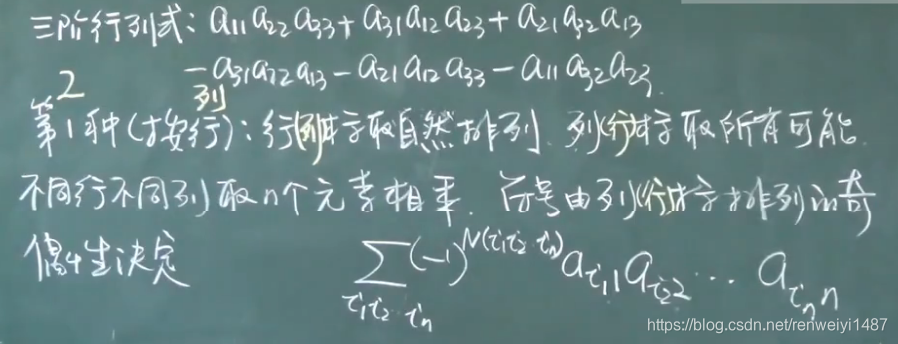 三阶行列式: a₁₁a₂₂a₃₃ + a₃₁a₁₂a₂₃ + a₂₁a₃₂a₁₃
-a₃₁a₂₂a₁₃ - a₂₁a₁₂a₃₃ - a₁₁a₃₂a₂₃
2 列
第1种(按行): 行(列)标取自然排列. 列(行)标取所有可能
不同行不同列取n个元素相乘. 符号由列(行)标排列的奇
偶性决定
∑(-1)^N(i₁i₂…iₙ) a_i₁1 a_i₂2 … a_iₙn
i₁i₂…iₙ
https://blog.csdn.net/renweiyi1487